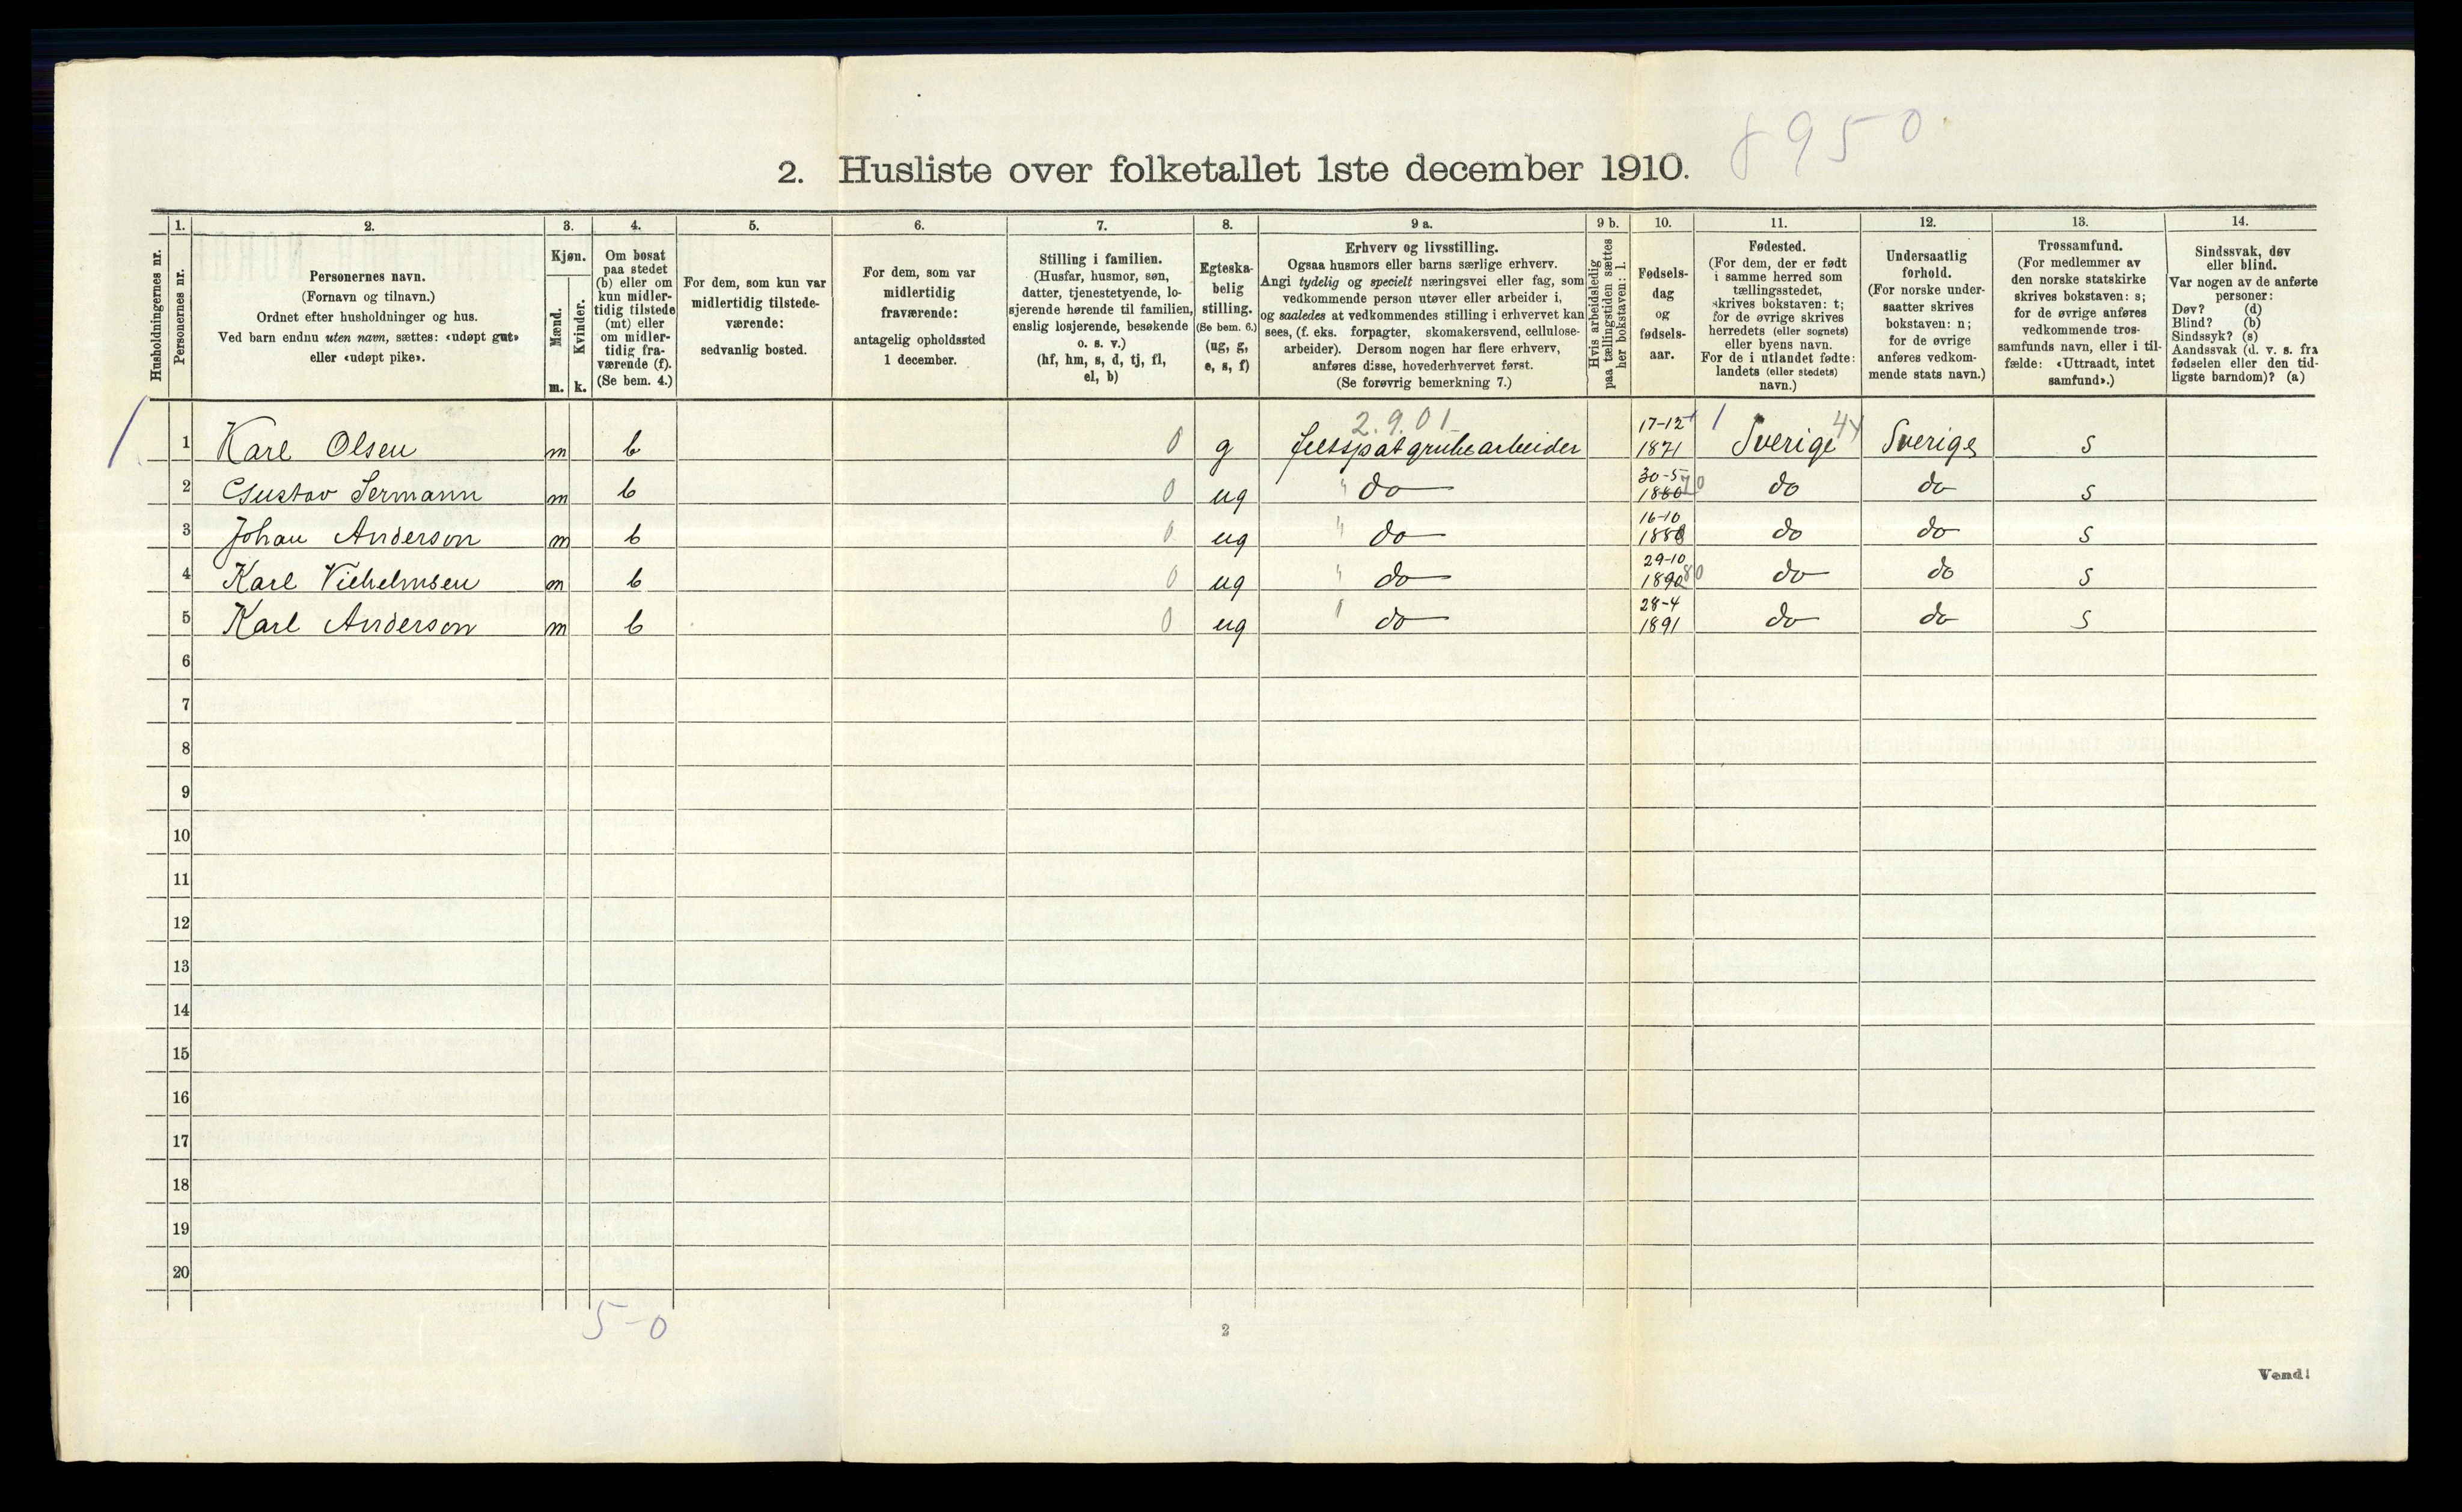 8950
2. Husliste over folketallet 1ste december 1910.
Husholdningernes nr.
1. Personernes nr.
2. Personernes navn. (Fornavn og tilnavn.) Ordnet efter husholdninger og hus. Ved barn endnu uten navn, sættes: «udøpt gut» eller «udøpt pike».
3. Kjøn. Mænd. m. Kvinder. k.
4. Om bosat paa stedet (b) eller om kun midlertidig tilstede (mt) eller om midlertidig fraværende (f). (Se bem. 4.)
5. For dem, som kun var midlertidig tilstedeværende: sedvanlig bosted.
6. For dem, som var midlertidig fraværende: antagelig opholdssted 1 december.
7. Stilling i familien. (Husfar, husmor, søn, datter, tjenestetyende, losjerende hørende til familien, enslig losjerende, besøkende o. s. v.) (hf, hm, s, d, tj, fl, el, b)
8. Egteskabelig stilling. (Se bem. 6.) (ug, g, e, s, f)
9 a. Erhverv og livsstilling. Ogsaa husmors eller barns særlige erhverv. Angi tydelig og specielt næringsvei eller fag, som vedkommende person utøver eller arbeider i, og saaledes at vedkommendes stilling i erhvervet kan sees, (f. eks. forpagter, skomakersvend, cellulosearbeider). Dersom nogen har flere erhverv, anføres disse, hovederhvervet først. (Se forøvrig bemerkning 7.)
9 b. Hvis arbeidsledig paa tællingstiden sættes her bokstaven: l.
10. Fødselsdag og fødselsaar.
11. Fødested. (For dem, der er født i samme herred som tællingsstedet, skrives bokstaven: t; for de øvrige skrives herredets (eller sognets) eller byens navn. For de i utlandet fødte: landets (eller stedets) navn.)
12. Undersaatlig forhold. (For norske undersaatter skrives bokstaven: n; for de øvrige anføres vedkommende stats navn.)
13. Trossamfund. (For medlemmer av den norske statskirke skrives bokstaven: s; for de øvrige anføres vedkommende trossamfunds navn, eller i tilfælde: «Uttraadt, intet samfund».)
14. Sindssvak, døv eller blind. Var nogen av de anførte personer: Døv? (d) Blind? (b) Sindssyk? (s) Aandssvak (d. v. s. fra fødselen eller den tidligste barndom)? (a)
2.9.01
1 Karl Olsen m b 0 g feltspatgrubearbeider 17-12 1871 Sverige 44 Sverige s
2 Gustav Sermann m b 0 ug " do 30-5 1880 70 do do s
3 Johan Anderson m b 0 ug " do 16-10 1888 do do s
4 Karl Vilhelmsen m b 0 ug " do 29-10 1890 80 do do s
5 Karl Anderson m b 0 ug " do 28-4 1891 do do s
6
7
8
9
10
11
12
13
14
15
16
17
18
19
20
5-0
2
Vend!